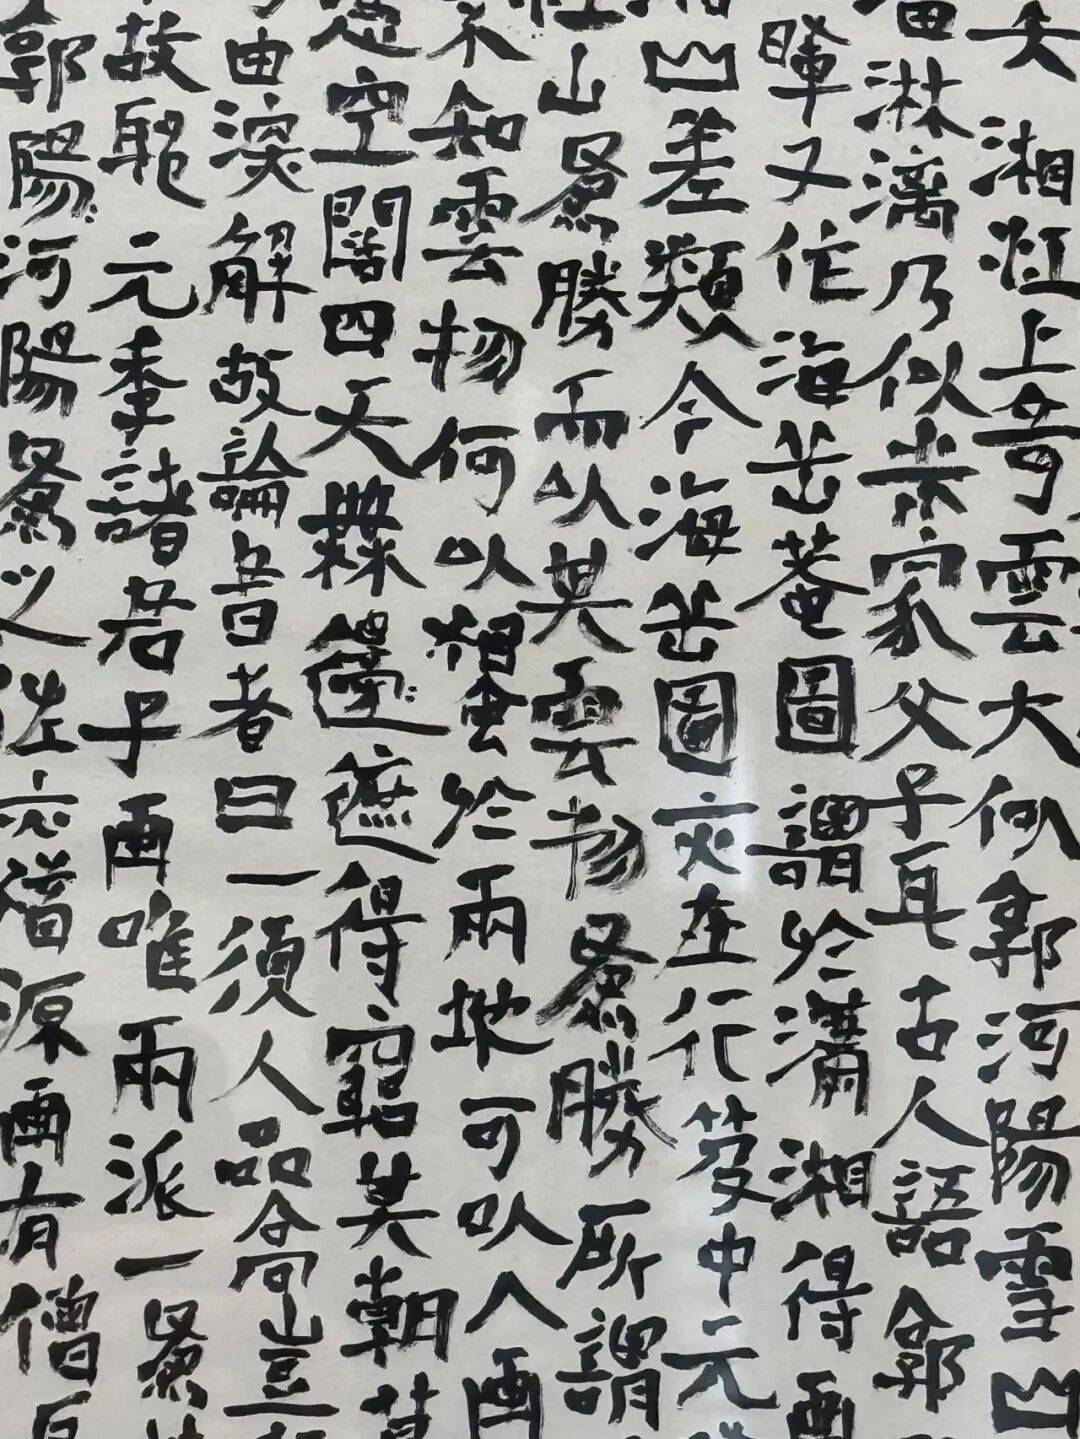 矢湘江上奇雲大似郭河陽雪山
淋漓乃似米家父子耳古人語郭
暉又作海岳菴圖謂於瀟湘得画
湘山差類今海岳圖亦在行笈中元
江山為勝而以其雲物為勝所謂
不知雲物何以獨於兩地可以入画
虛空闊四天無邊遮得窮其朝
由深解故論者曰一須人品高豈
故耽元季諸君子画唯兩派一為
郭陽河陽為之佐亦猶源画有僧巨